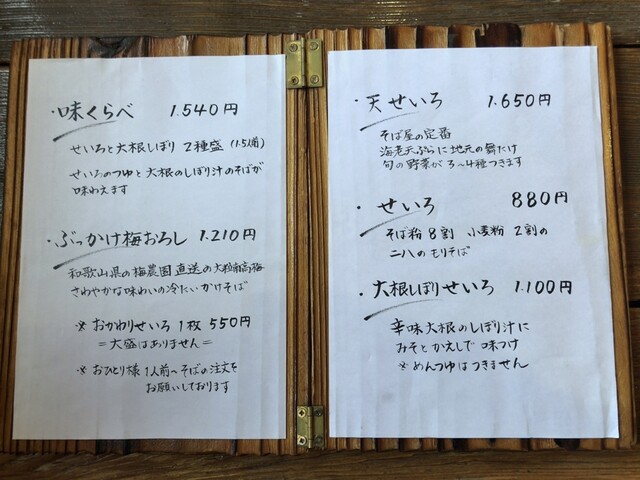 ・味くらべ 1.540円
せいろと大根しぼり 2種盛 (1.5人前)
せいろのつゆと大根のしぼり汁のそばが
味わえます
・ぶっかけ梅おろし 1.210円
和歌山県の梅農園直送の大粒南高梅
さわやかな味わいの冷たいかけそば
※ おかわりせいろ 1枚 550円
＝大盛はありません＝
※ おひとり様1人前〜そばの注文を
お願いしております
・天せいろ 1.650円
そば屋の定番
海老天ぷらに地元の舞たけ
旬の野菜が3〜4種つきます
・せいろ 880円
そば粉8割 小麦粉 2割の
二八のもりそば
・大根しぼりせいろ 1.100円
辛味大根のしぼり汁に
みそとかえしで味つけ
※めんつゆはつきません